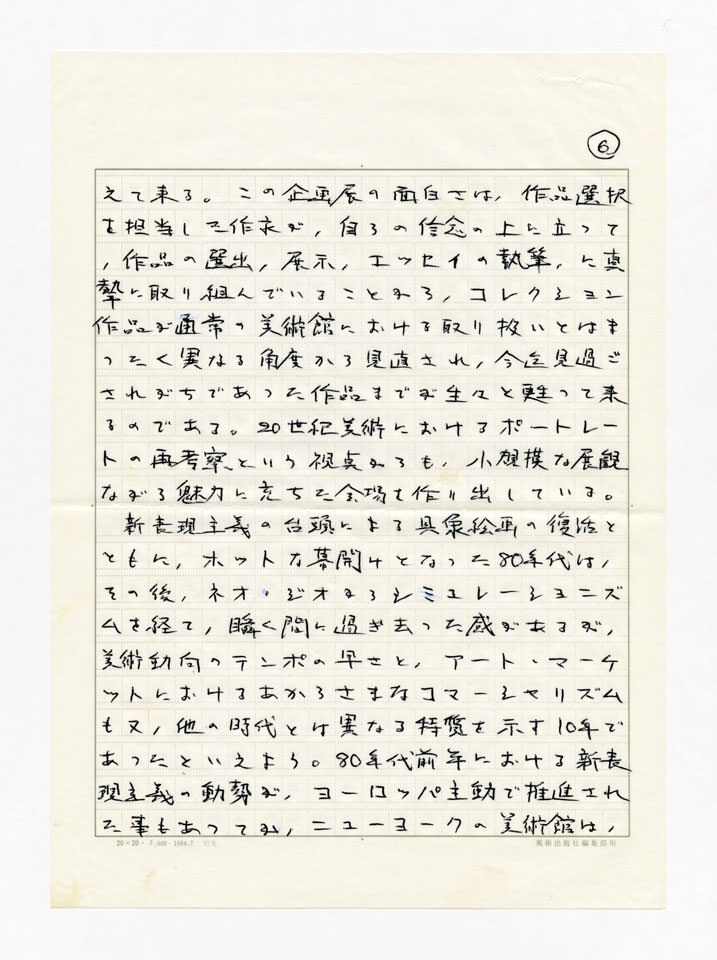 ⑥
えて来る。この企画展の面白さは，作品選択
を担当した作家が，自らの信念の上に立って
，作品の選出，展示，エッセイの執筆，に真
摯に取り組んでいることから，コレクション
作品が通常の美術館における取り扱いとはま
ったく異なる角度から見直され，今迄見過ご
されがちであった作品までが生々と甦って来
るのである。20世紀美術におけるポートレー
トの再考察という視点からも，小規模な展観
ながら魅力に充ちた会場を作り出している。
新表現主義の台頭による具象絵画の復活と
ともに，ホットな幕開けとなった80年代は，
その後，ネオ・ジオからシミュレーショニズ
ムを経て，瞬く間に過ぎ去った感があるが，
美術動向のテンポの早さと，アート・マーケ
ットにおけるあからさまなコマーシャリズム
も又，他の時代とは異なる特質を示す10年で
あったといえよう。80年代前年における新表
現主義の動勢が，ヨーロッパ主動で推進され
た事もあってか，ニューヨークの美術館は，
20×20・ 1984.7
美術出版社編集部用